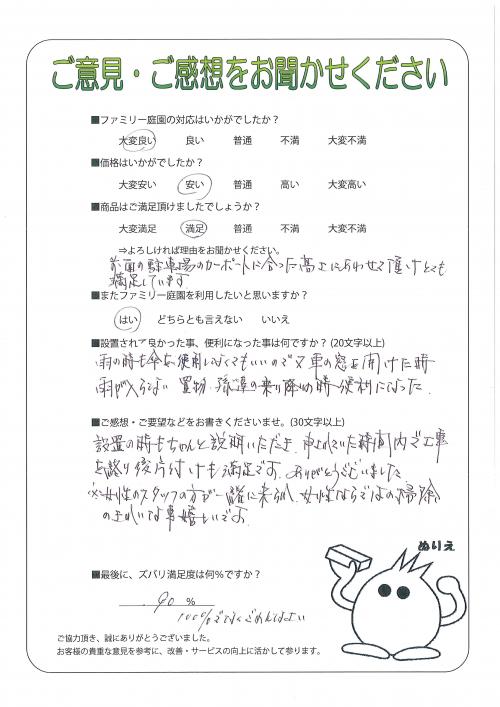 ご意見・ご感想をお聞かせください
■ファミリー庭園の対応はいかがでしたか？
大変良い 良い 普通 不満 大変不満
■価格はいかがでしたか？
大変安い 安い 普通 高い 大変高い
■商品はご満足頂けましたでしょうか？
大変満足 満足 普通 不満 大変不満
⇒よろしければ理由をお聞かせください。
前面の駐車場のカーポートに合った高さにあわせて頂けとても
満足しています
■またファミリー庭園を利用したいと思いますか？
はい どちらとも言えない いいえ
■設置されて良かった事、便利になった事は何ですか？(20文字以上)
雨の時も傘を使用しなくてもいいので又車の窓を開けた時
雨が入らない 買物、孫達の乗り降りの時便利になった。
■ご感想・ご要望などをお書きくださいませ。(30文字以上)
設置の時もちゃんと説明いただき、申されていた時間内で工事
を終り後片付けも満足です。ありがとうございました
※女性のスタッフの方が一緒に来られ、女性ならではの掃除
の上れいな事嬉しいです
ぬりえ
■最後に、ズバリ満足度は何%ですか？
90 %
100%でなくごめんなさい
ご協力頂き、誠にありがとうございました。
お客様の貴重な意見を参考に、改善・サービスの向上に活かして参ります。